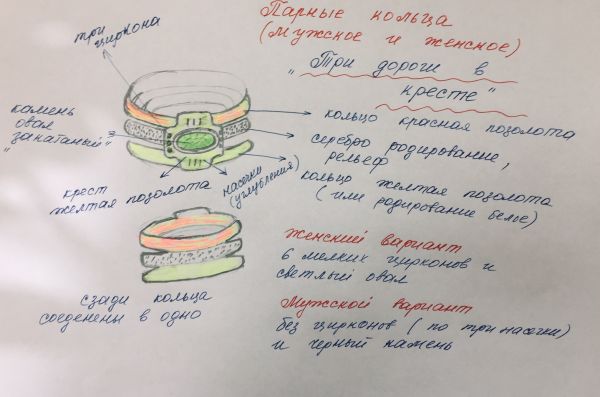 Парные кольца
(мужское и женское)
„Три дороги в
кресте“
три
циркона
камень
овал
„закатаный“
крест
желтая позолота
насечки
(углубления)
кольцо красная позолота
серебро родирование,
рельеф
кольцо желтая позолота
(или родирование белое)
сзади кольца
соеденены в одно
Женский вариант
6 мелких цирконов и
светлый овал
Мужской вариант
без цирконов (по три насечки)
и черный камень